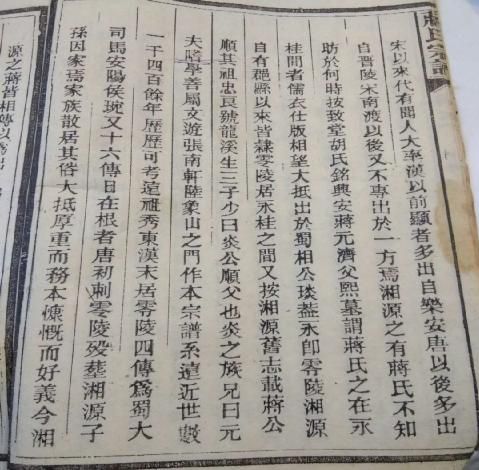 蔣氏宗譜
宋以來代有聞人大率漢以前顯者多出自樂安唐以後多出
自晉陵宋南渡以後又不專出於一方焉湘源之有蔣氏不知
助於何時按致堂胡氏銘興安蔣元濟父熙墓謂蔣氏之在永
桂間者儒衣仕版相望大抵出於蜀相公琰蓋永卽零陵湘源
自有郡縣以來皆隸零陵居永桂之間又按湘源舊志載蔣公
順其祖忠良號龍溪生三子少曰炎公順父也炎之族兄曰元
夫嗜學善屬文遊張南軒陸象山之門作本宗譜系遠近世數
一千四百餘年歷歷可考遠祖秀東漢末居零陵四傳爲蜀大
司馬安陽侯琬又十六傳曰在根者唐初刺零陵歿葬湘源子
孫因家焉家族散居其俗大抵厚重而務本慷慨而好義今湘
源之蔣皆相傳以爲出